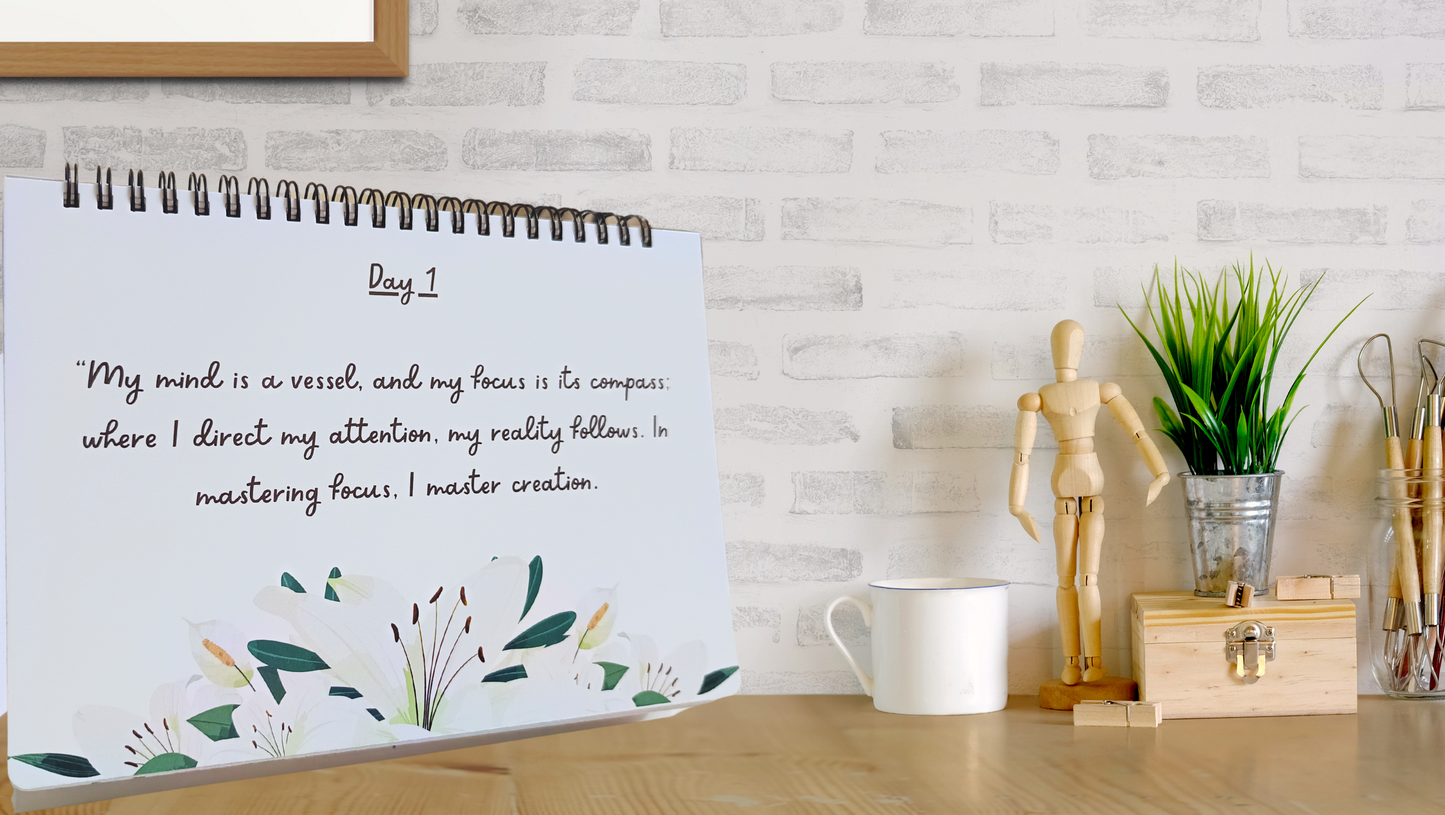 Day 1
“My mind is a vessel, and my focus is its compass;
where I direct my attention, my reality follows. In
mastering focus, I master creation.